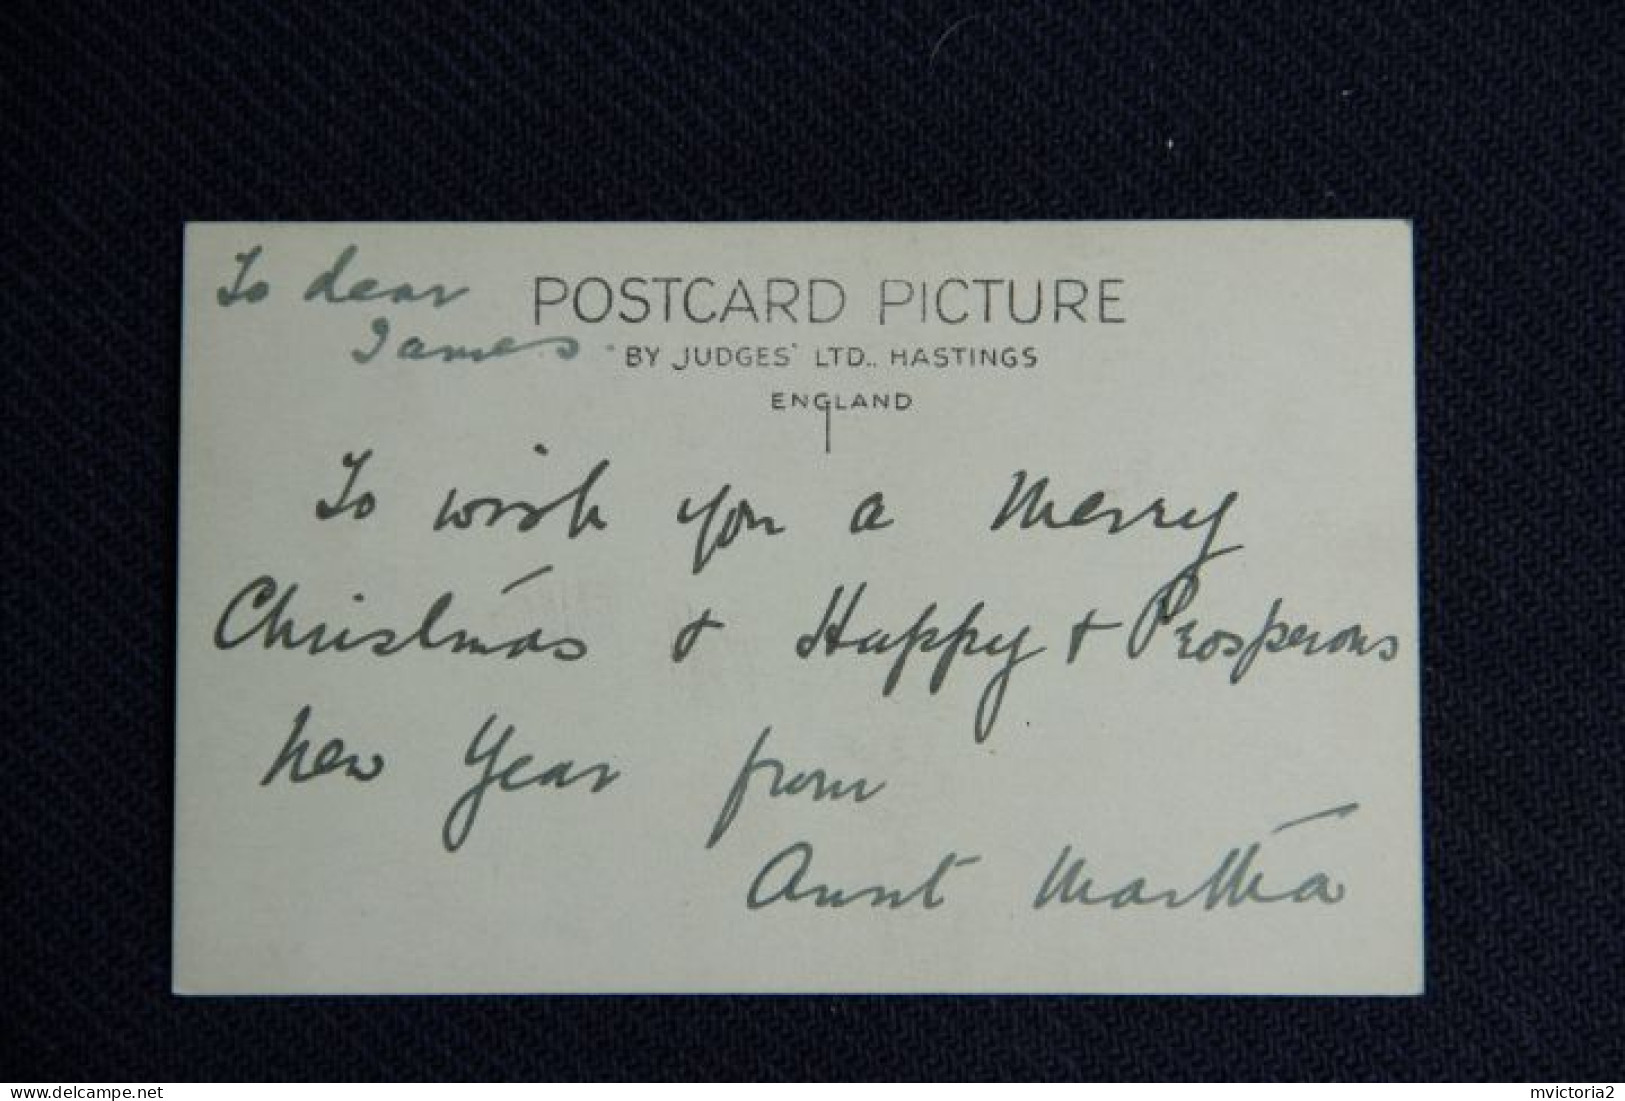 To dear
James
POSTCARD PICTURE
BY JUDGES' LTD., HASTINGS
ENGLAND
To wish you a Merry
Christmas & Happy & Prosperous
New Year from
Aunt Martha
delcampe.net
mvictoria2